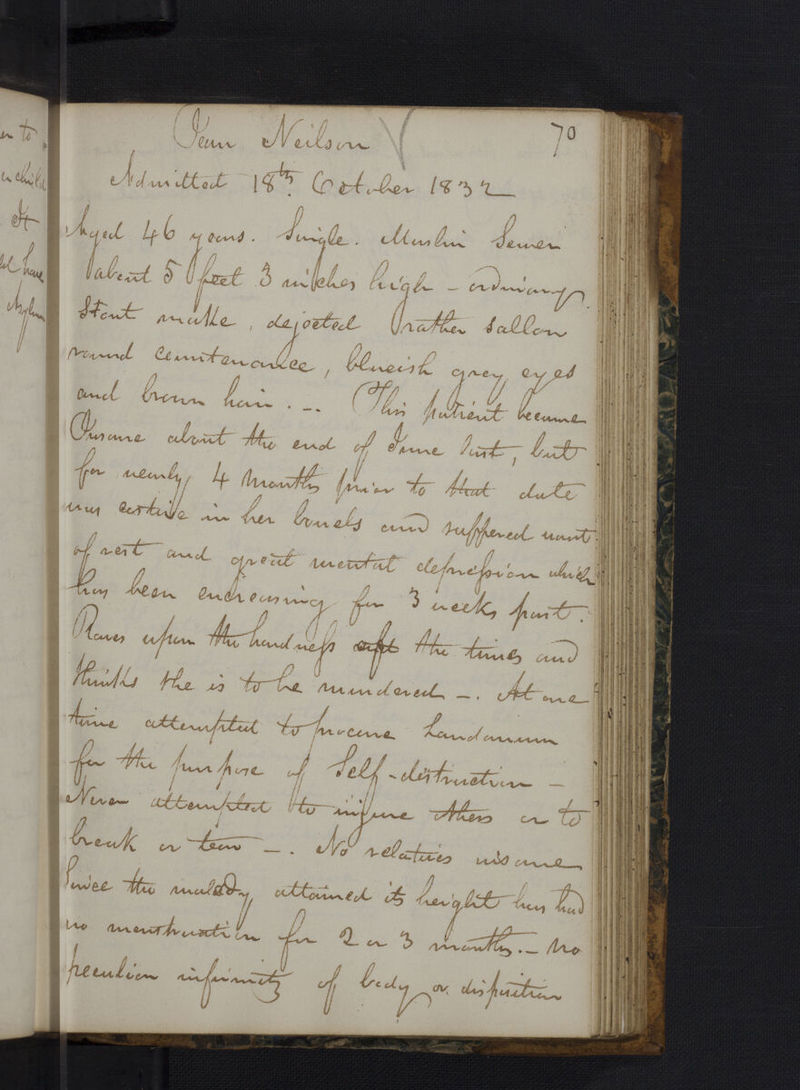 70
Jean Neilson
Admitted 18th. October 1832
Aged 46 years. Single. Muslin Sewer
about 5 feet 3 inches high - ordinary
stout make, dejected rather sallow
round countenance, blueish grey eyes
and brown hair. -. This patient became
Insane about the end of June last, but
for nearly 4 months prior to that date
was costive in her bowels and suffered want
of rest and great mental depression which
has been encreasing for 3 weeks past.
Raves upon the hardness of the times and
thinks she is to be murdered -. At one
time attempted to procure Laudanum
for the purpose of Self-distruction -
Never attempted to injure others or to
break or tear -. No relatives insane
Since the malady attained its height has had
no menstruation for 2 or 3 months. - No
peculiar infirmity of body or disposition
er to
a child
It
have
Asylum